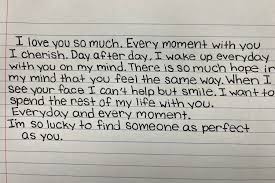 I love you so much. Every moment with you
I cherish. Day after day, I wake up everyday
with you on my mind. There is so much hope in
my mind that you feel the same way. When I
see your face I can't help but smile. I want to
spend the rest of my life with you.
Everyday and every moment.
I'm so lucky to find someone as perfect
as you.